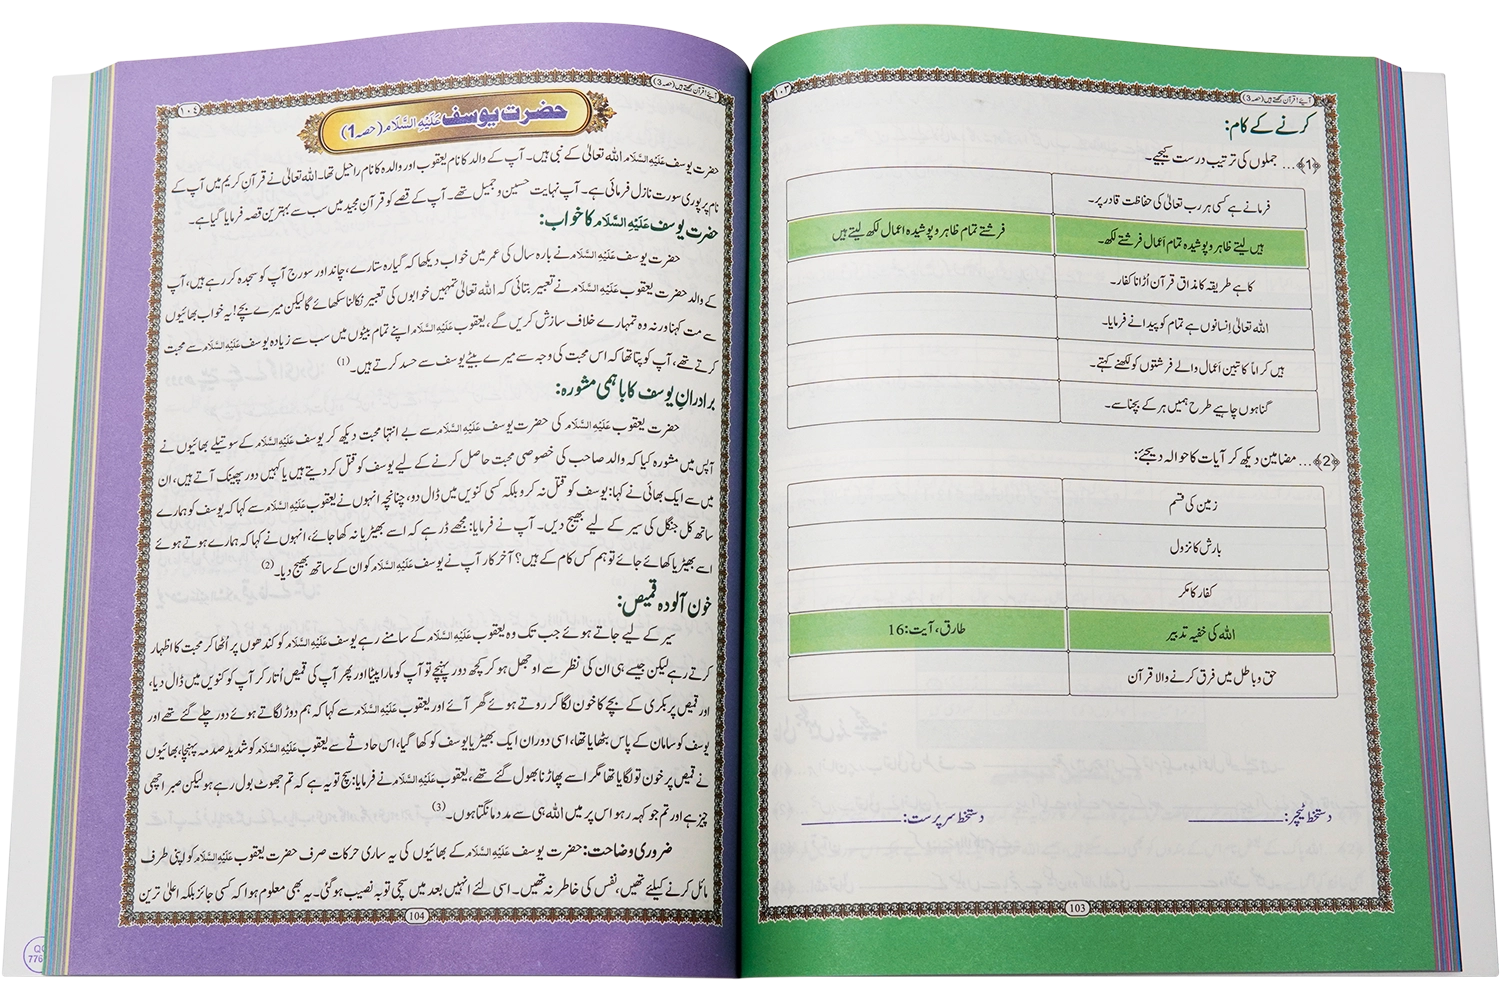 آیئے! قرآن سمجھتے ہیں (حصہ 3)
۱۰۳
کرنے کے کام:
﴿1﴾... جملوں کی ترتیب درست کیجیے۔
فرمانے ہے کسی ہر رب تعالیٰ کی حفاظت قادر پر۔
ہیں لیتے ظاہر و پوشیدہ تمام اَعمال فرشتے لکھ۔
فرشتے تمام ظاہر و پوشیدہ اعمال لکھ لیتے ہیں
کا ہے طریقہ کا مذاق قرآن اُڑانا کفار۔
اللہ تعالیٰ اِنسانوں ہے تمام کو پیدا نے فرمایا۔
ہیں کراماً کاتبین اَعمال والے فرشتوں کو لکھنے کہتے۔
گناہوں چاہیے طرح ہمیں ہر کے بچنا سے۔
﴿2﴾... مضامین دیکھ کر آیات کا حوالہ دیجئے:
زمین کی قسم
بارش کا نزول
کفار کا مکر
اللہ کی خفیہ تدبیر
طارق، آیت: 16
حق و باطل میں فرق کرنے والا قرآن
دستخط ٹیچر:
دستخط سرپرست:
103
آیئے! قرآن سمجھتے ہیں (حصہ 3)
۱۰٤
حضرت یوسف عَلَیْہِ السَّلَام (حصہ 1)
حضرت یوسف عَلَیْہِ السَّلَام اللہ تعالیٰ کے نبی ہیں۔ آپ کے والد کا نام یعقوب اور والدہ کا نام راحیل تھا۔ اللہ تعالیٰ نے قرآنِ کریم میں آپ کے
نام پر پوری سورت نازل فرمائی ہے۔ آپ نہایت حسین و جمیل تھے۔ آپ کے قصے کو قرآن مجید میں سب سے بہترین قصہ فرمایا گیا ہے۔
حضرت یوسف عَلَیْہِ السَّلَام کا خواب:
حضرت یوسف عَلَیْہِ السَّلَام نے بارہ سال کی عمر میں خواب دیکھا کہ گیارہ ستارے، چاند اور سورج آپ کو سجدہ کر رہے ہیں، آپ
کے والد حضرت یعقوب عَلَیْہِ السَّلَام نے تعبیر بتائی کہ اللہ تعالیٰ تمہیں خوابوں کی تعبیر نکالنا سکھائے گا لیکن میرے بچے! یہ خواب بھائیوں
سے مت کہنا ورنہ وہ تمہارے خلاف سازش کریں گے، یعقوب عَلَیْہِ السَّلَام اپنے تمام بیٹوں میں سب سے زیادہ یوسف عَلَیْہِ السَّلَام سے محبت
کرتے تھے، آپ کو پتا تھا کہ اس محبت کی وجہ سے میرے بیٹے یوسف سے حسد کرتے ہیں۔(1)
برادرانِ یوسف کا باہمی مشورہ:
حضرت یعقوب عَلَیْہِ السَّلَام کی حضرت یوسف عَلَیْہِ السَّلَام سے بے انتہا محبت دیکھ کر یوسف عَلَیْہِ السَّلَام کے سوتیلے بھائیوں نے
آپس میں مشورہ کیا کہ والد صاحب کی خصوصی محبت حاصل کرنے کے لیے یوسف کو قتل کر دیتے ہیں یا کہیں دور پھینک آتے ہیں، ان
میں سے ایک بھائی نے کہا: یوسف کو قتل نہ کرو بلکہ کسی کنویں میں ڈال دو، چنانچہ انہوں نے یعقوب عَلَیْہِ السَّلَام سے کہا کہ یوسف کو ہمارے
ساتھ کل جنگل کی سیر کے لیے بھیج دیں۔ آپ نے فرمایا: مجھے ڈر ہے کہ اسے بھیڑیا نہ کھا جائے، انہوں نے کہا کہ ہمارے ہوتے ہوئے
اسے بھیڑیا کھا ئے جائے تو ہم کس کام کے ہیں؟ آخر کار آپ نے یوسف عَلَیْہِ السَّلَام کو ان کے ساتھ بھیج دیا۔(2)
خون آلودہ قمیص:
سیر کے لیے جاتے ہوئے جب تک وہ یعقوب عَلَیْہِ السَّلَام کے سامنے رہے یوسف عَلَیْہِ السَّلَام کو کندھوں پر اُٹھا کر محبت کا اظہار
کرتے رہے لیکن جیسے ہی ان کی نظر سے اوجھل ہو کر کچھ دور پہنچے تو آپ کو مارا پیٹا اور پھر آپ کی قمیص اُتار کر آپ کو کنویں میں ڈال دیا،
اور قمیص پر بکری کے بچے کا خون لگا کر روتے ہوئے گھر آئے اور یعقوب عَلَیْہِ السَّلَام سے کہا کہ ہم دوڑ لگاتے ہوئے دور چلے گئے تھے اور
یوسف کو سامان کے پاس بٹھایا تھا، اسی دوران ایک بھیڑیا یوسف کو کھا گیا، اس حادثے سے یعقوب عَلَیْہِ السَّلَام کو شدید صدمہ پہنچا، بھائیوں
نے قمیص پر خون تو لگایا تھا مگر اسے پھاڑنا بھول گئے تھے، یعقوب عَلَیْہِ السَّلَام نے فرمایا: سچ تو یہ ہے کہ تم جھوٹ بول رہے ہو لیکن صبر اچھی
چیز ہے اور تم جو کہہ رہو اس پر میں اللہ ہی سے مدد مانگتا ہوں۔(3)
ضروری وضاحت: حضرت یوسف عَلَیْہِ السَّلَام کے بھائیوں کی یہ ساری حرکات صرف حضرت یعقوب عَلَیْہِ السَّلَام کو اپنی طرف
مائل کرنے کیلئے تھیں، نفس کی خاطر نہ تھیں۔ اسی لئے انہیں بعد میں سچی توبہ نصیب ہوگئی۔ یہ بھی معلوم ہوا کہ کسی جائز بلکہ اعلیٰ ترین
104